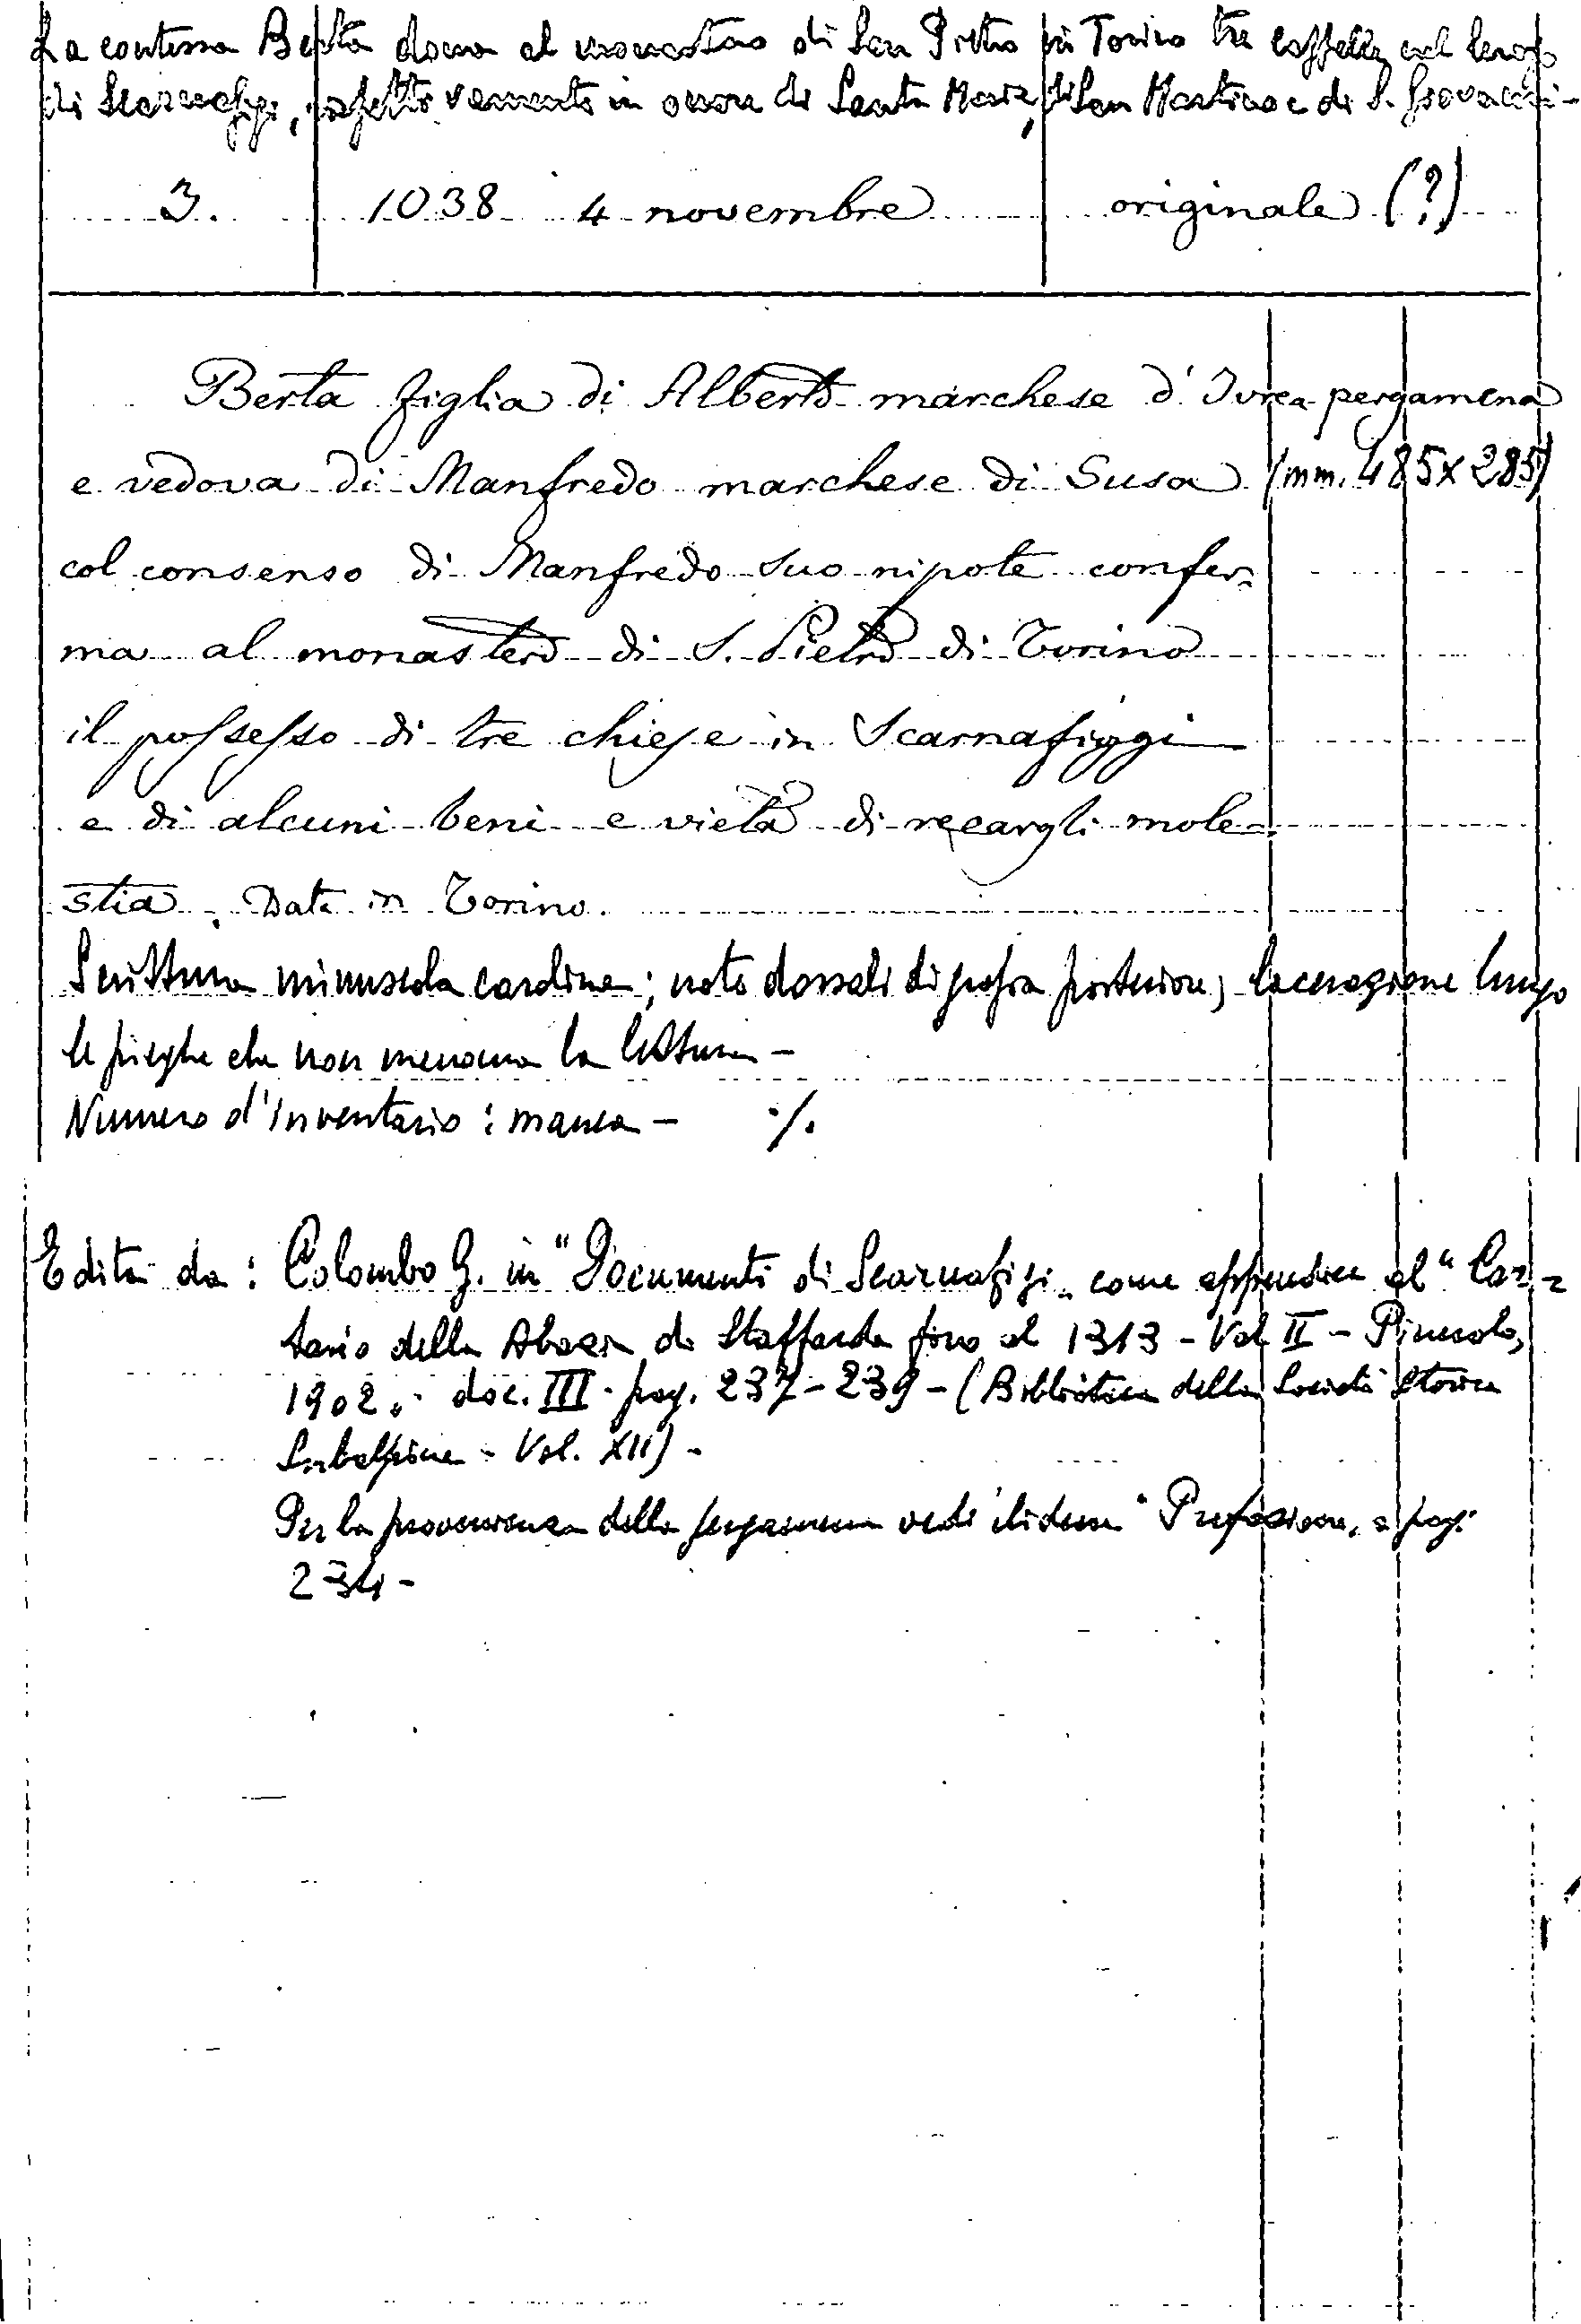 La contessa Berta dona al monastero di San Pietro in Torino tre cappelle nel luogo
di Scarnafigi, rispettivamente in onore di Santa Maria, di San Martino e di S. Giovanni -
3. 1038 4 novembre originale (?)
Berta figlia di Alberto marchese d'Ivrea pergamena
e vedova di Manfredo marchese di Susa (mm. 485 x 285)
col consenso di Manfredo suo nipote confer-
ma al monastero di S. Pietro di Torino
il possesso di tre chiese in Scarnafiggi
e di alcuni beni e vieta di recargli mole-
stia. Data in Torino.
Scrittura minuscola carolina; note dorsali di epoca posteriore; lacerazione lungo
le pieghe che non menoma la lettura -
Numero d'Inventario: manca - ·/.
Edita da: Colombo G. in "Documenti di Scarnafigi" come appendice al "Car-
tario della Abazia di Staffarda fino al 1313 - Vol II - Pinerolo,
1902. - doc. III - pag. 237-239 - (Biblioteca della Società Storica
Subalpina - Vol. XII) -
Per la provenienza della pergamena vedi "Prefazione, a pag.
234 -